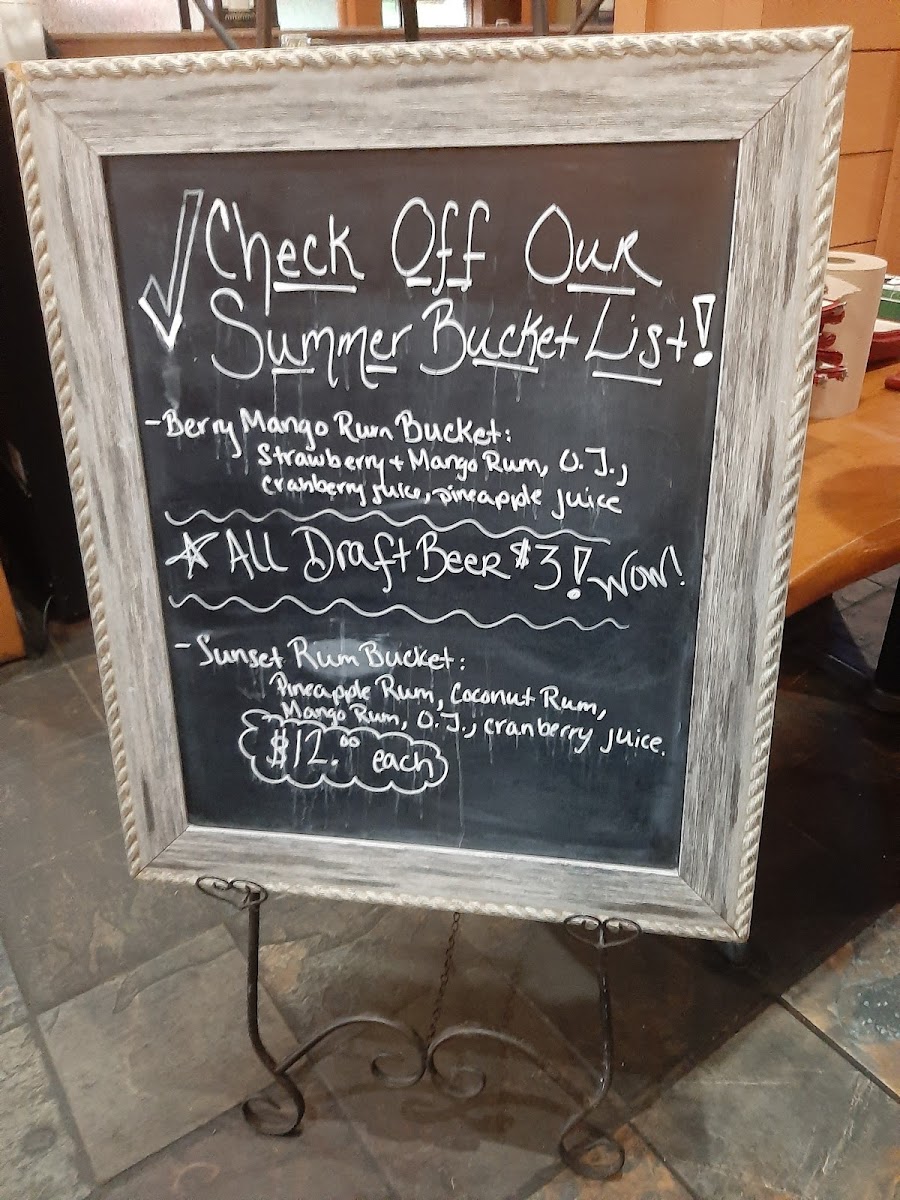 Check Off Our
Summer Bucket List!
- Berry Mango Rum Bucket:
Strawberry + Mango Rum, O.J.,
cranberry juice, pineapple juice
All Draft Beer $3! WOW!
- Sunset Rum Bucket:
Pineapple Rum, Coconut Rum,
Mango Rum, O.J., cranberry juice.
$12.00 each